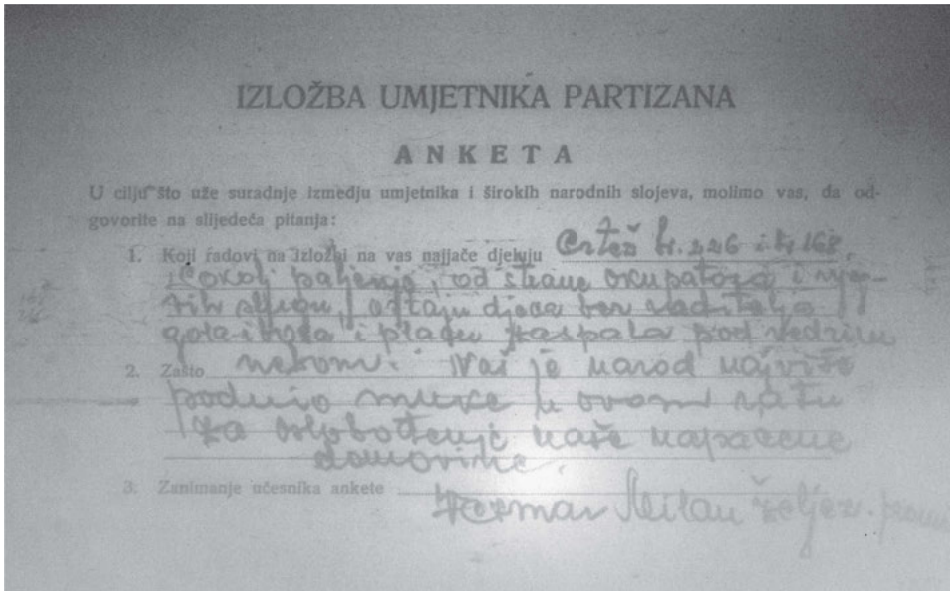 IZLOŽBA UMJETNIKA PARTIZANA
ANKETA
U cilju što uže suradnje izmedju umjetnika i širokih narodnih slojeva, molimo vas, da od-
govorite na slijedeča pitanja:
1. Koji radovi na Izložbi na vas najjače djeluju Crtež br. 226 i br 168.
paljenja, od strane okupatora i nje-
ostaju djeca bez roditelja
gola i bosa i plaču pod vedrim
2. Zašto nebom. Naš je narod najviše
podnio muke u ovom ratu
za oslobođenje naše napaćene
domovine.
3. Zanimanje učesnika ankete
Milan željez.